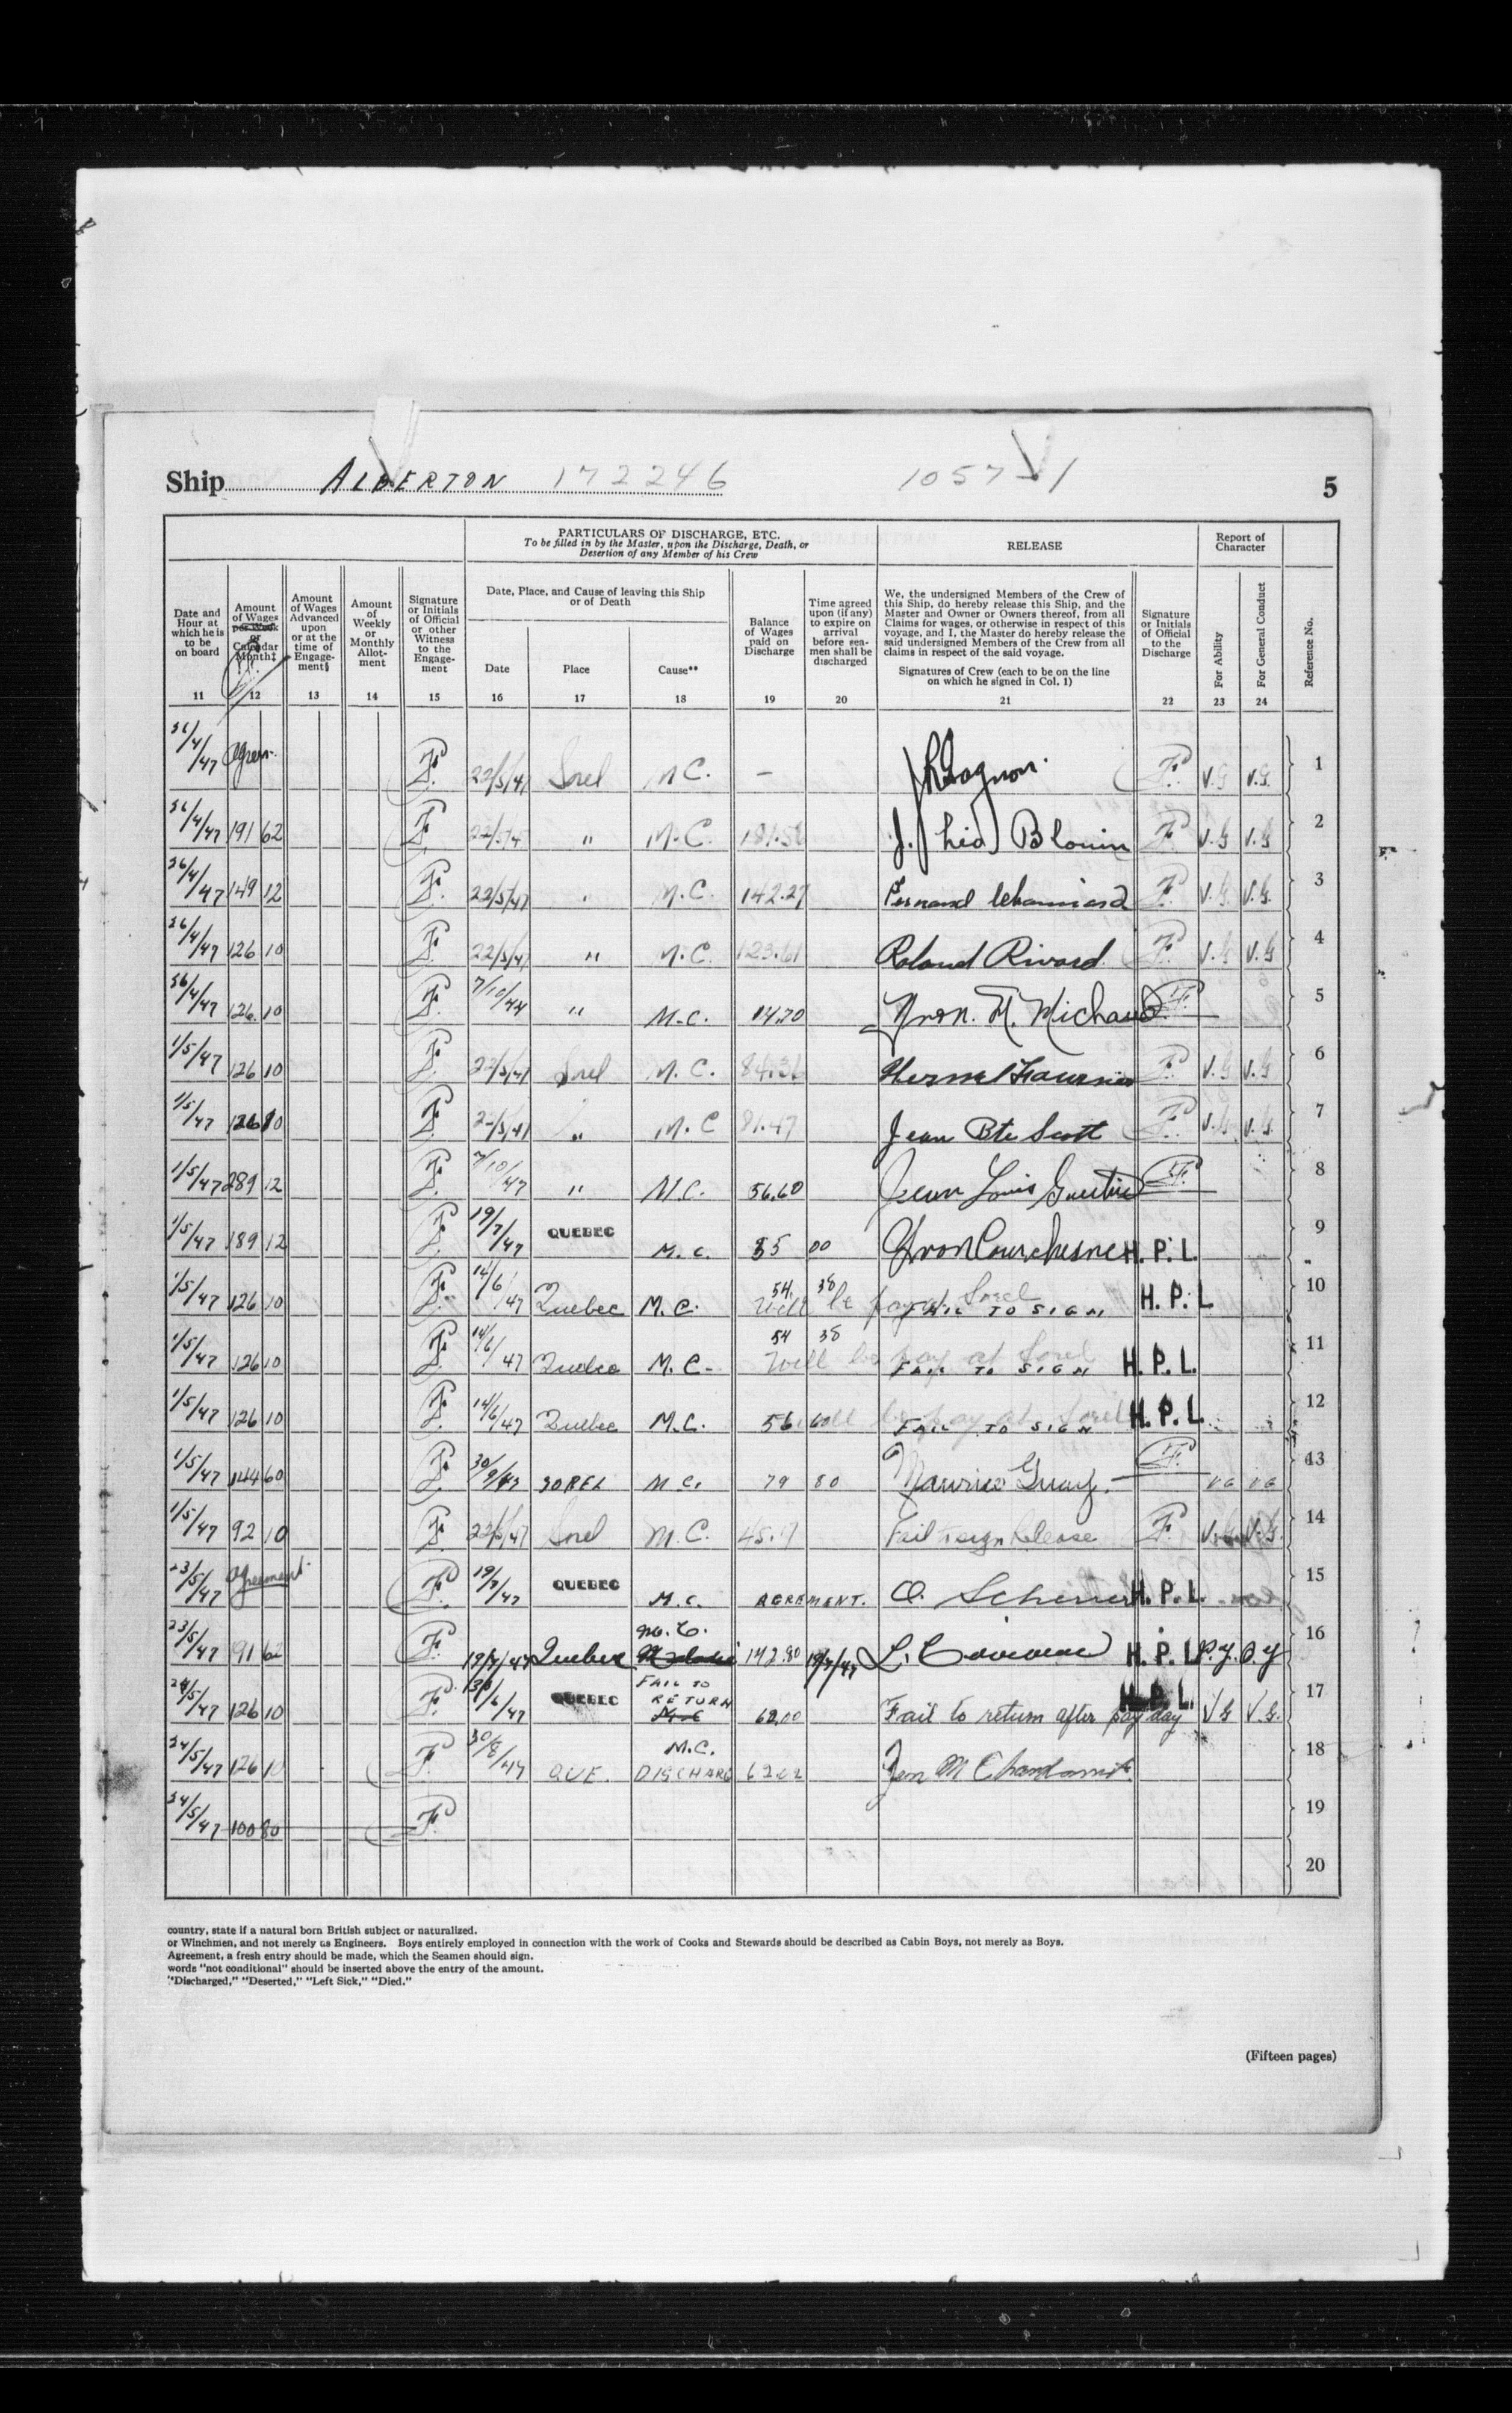 Ship ALBERTON 172246 1057 1 5
PARTICULARS OF DISCHARGE, ETC.
To be filled in by the Master, upon the Discharge, Death, or
Desertion of any Member of his Crew
RELEASE
Report of
Character
Date and
Hour at
which he is
to be
on board
11
Amount
of Wages
per Week
or
Calendar
Month‡
12
Amount
of Wages
Advanced
upon
or at the
time of
Engage-
ment§
13
Amount
of
Weekly
or
Monthly
Allot-
ment
14
Signature
or Initials
of Official
or other
Witness
to the
Engage-
ment
15
Date, Place, and Cause of leaving this Ship
or of Death
Date
16
Place
17
Cause**
18
Balance
of Wages
paid on
Discharge
19
Time agreed
upon (if any)
to expire on
arrival
before sea-
men shall be
discharged
20
We, the undersigned Members of the Crew of
this Ship, do hereby release this Ship, and the
Master and Owner or Owners thereof, from all
Claims for wages, or otherwise in respect of this
voyage, and I, the Master do hereby release the
said undersigned Members of the Crew from all
claims in respect of the said voyage.
Signatures of Crew (each to be on the line
on which he signed in Col. 1)
21
Signature
or Initials
of Official
to the
Discharge
22
For Ability
23
For General Conduct
24
Reference No.
26/4/47 F. 22/5/47 Sorel M.C. — Gagnon F. V.G V.G. 1
26/4/47 191 62 F. 22/5/4 " M.C. 181.58 J. Blouin F. V.G V.G 2
26/4/47 149 12 F. 22/5/47 " M.C. 142.27 Fernand F. V.G. V.G. 3
26/4/47 126 10 F. 22/5/47 " M.C. 123.61 Roland Rivard F. V.G V.G 4
26/4/47 126.10 F. 7/10/44 " M.C. 14.70 Yvon. M. Michaud F. 5
1/5/47 126 10 F. 22/5/47 Sorel M.C. 84.36 Fournier F. V.G V.G 6
1/5/47 126 10 F. 22/5/47 " M.C 81.47 Jean Bte Scott F. V.G. V.G. 7
1/5/47 289 12 F. 7/10/47 " M.C. 56.60 Jean Louis F. 8
1/5/47 189 12 F. 19/7/47 QUEBEC M.C. 85 00 Yvon Courchesne H.P.L. 9
1/5/47 126 10 F. 14/6/47 Quebec M.C. 54. 38 Will be pay at Sorel FAIL TO SIGN H.P.L 10
1/5/47 126 10 F. 14/6/47 Quebec M.C. 54 38 Will be pay at Sorel FAIL TO SIGN H.P.L. 11
1/5/47 126 10 F. 14/6/47 Quebec M.C. 56. 60 Will be pay at Sorel FAIL TO SIGN H.P.L. 12
1/5/47 144 60 F. 30/9/47 SOREL M.C. 79 80 Maurice Guay. F. VG VG 13
1/5/47 92 10 F. 22/5/47 Sorel M.C. 45. Fail to sign Release F. V.G. V.G. 14
23/5/47 Agreement F. 19/7/47 QUEBEC M.C. AGREMENT. O. H.P.L. 15
23/5/47 191 62 F. 19/7/47 Quebec M.C. 142.80 19/7/47 L. H.P.L 16
24/5/47 126 10 F. 6/47 QUEBEC FAIL TO RETURN 62.00 Fail to return after pay day H.P.L. V.G V.G. 17
24/5/47 126 10 F. 30/8/47 QUE. M.C. DISCHARG 62.02 18
24/5/47 100 80 F. 19
20
country, state if a natural born British subject or naturalized.
or Winchmen, and not merely as Engineers. Boys entirely employed in connection with the work of Cooks and Stewards should be described as Cabin Boys, not merely as Boys.
Agreement, a fresh entry should be made, which the Seamen should sign.
words "not conditional" should be inserted above the entry of the amount.
"Discharged," "Deserted," "Left Sick," "Died."
(Fifteen pages)